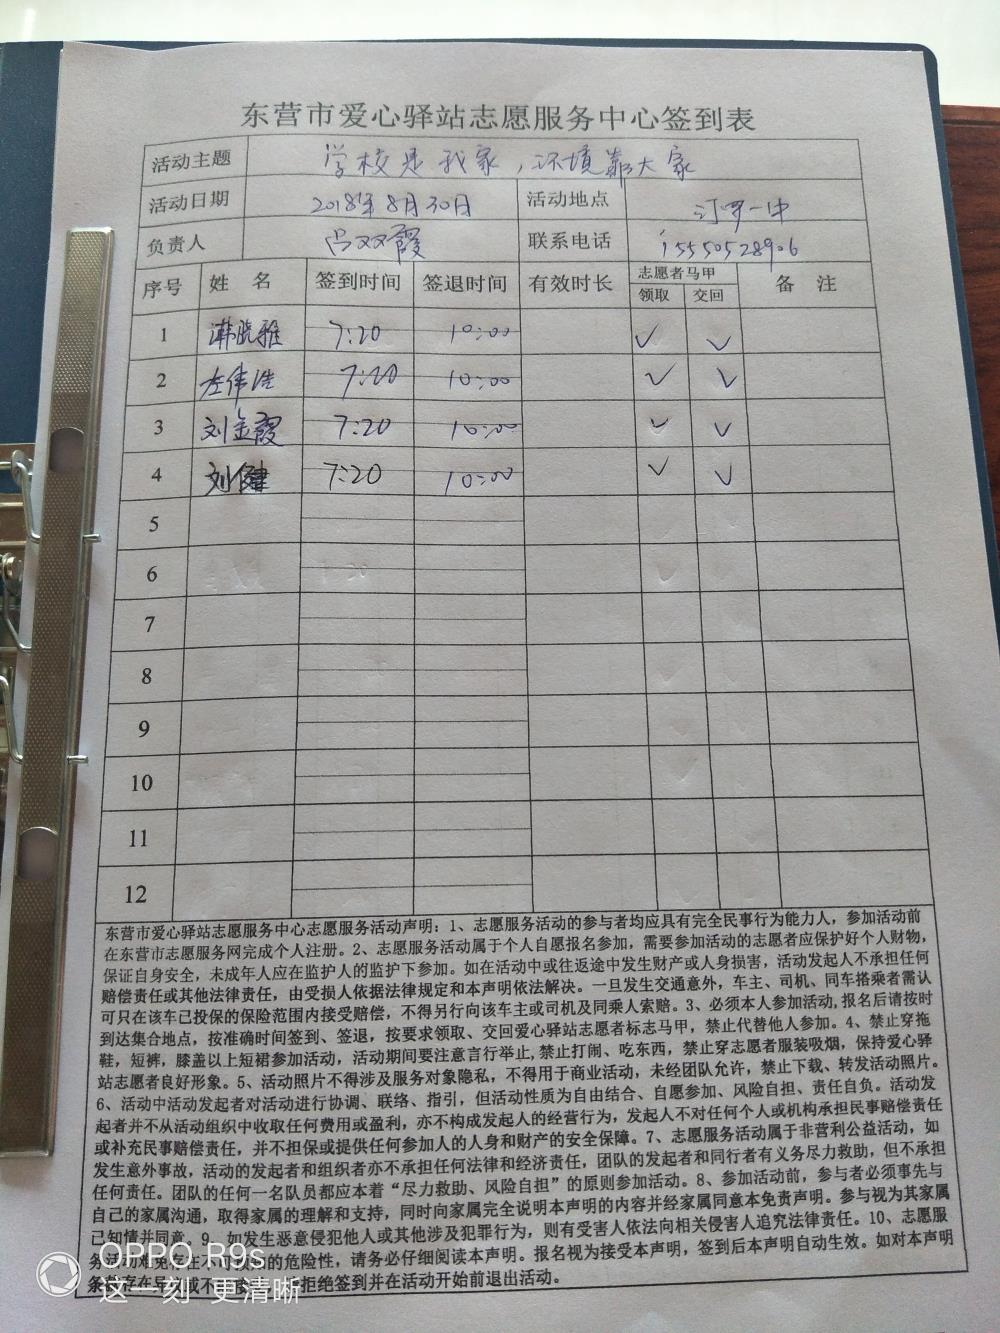 东营市爱心驿站志愿服务中心签到表
活动主题 学校是我家，环境靠大家
活动日期 2018年8月30日 活动地点 汀罗一中
负责人 吕双霞 联系电话 15550528906
序号 姓 名 签到时间 签退时间 有效时长 志愿者马甲 备 注
领取 交回
1 韩晓雅 7:20 10:00 ✓ ✓
2 左伟浩 7:20 10:00 ✓ ✓
3 刘金霞 7:20 10:00 ✓ ✓
4 刘健 7:20 10:00 ✓ ✓
5
6
7
8
9
10
11
12
东营市爱心驿站志愿服务中心志愿服务活动声明：1、志愿服务活动的参与者均应具有完全民事行为能力人，参加活动前
在东营市志愿服务网完成个人注册。2、志愿服务活动属于个人自愿报名参加，需要参加活动的志愿者应保护好个人财物，
保证自身安全，未成年人应在监护人的监护下参加。如在活动中或往返途中发生财产或人身损害，活动发起人不承担任何
赔偿责任或其他法律责任，由受损人依据法律规定和本声明依法解决。一旦发生交通意外，车主、司机、同车搭乘者需认
可只在该车已投保的保险范围内接受赔偿，不得另行向该车主或司机及同乘人索赔。3、必须本人参加活动，报名后请按时
到达集合地点，按准确时间签到、签退，按要求领取、交回爱心驿站志愿者标志马甲，禁止代替他人参加。4、禁止穿拖
鞋，短裤，膝盖以上短裙参加活动，活动期间要注意言行举止，禁止打闹、吃东西，禁止穿志愿者服装吸烟，保持爱心驿
站志愿者良好形象。5、活动照片不得涉及服务对象隐私，不得用于商业活动，未经团队允许，禁止下载、转发活动照片。
6、活动中活动发起者对活动进行协调、联络、指引，但活动性质为自由结合、自愿参加、风险自担、责任自负。活动发
起者并不从活动组织中收取任何费用或盈利，亦不构成发起人的经营行为，发起人不对任何个人或机构承担民事赔偿责任
或补充民事赔偿责任，并不担保或提供任何参加人的人身和财产的安全保障。7、志愿服务活动属于非营利公益活动，如
发生意外事故，活动的发起者和组织者亦不承担任何法律和经济责任，团队的发起者和同行者有义务尽力救助，但不承担
任何责任。团队的任何一名队员都应本着“尽力救助、风险自担”的原则参加活动。8、参加活动前，参与者必须事先与
自己的家属沟通，取得家属的理解和支持，同时向家属完全说明本声明的内容并经家属同意本免责声明。参与视为其家属
已知情并同意。9、如发生恶意侵犯他人或其他涉及犯罪行为，则有受害人依法向相关侵害人追究法律责任。10、志愿服
务 在不可预 的危险性，请务必仔细阅读本声明。报名视为接受本声明，签到后本声明自动生效。如对本声明
条 存在 或不 拒绝签到并在活动开始前退出活动。
OPPO R9s
这一刻 更清晰